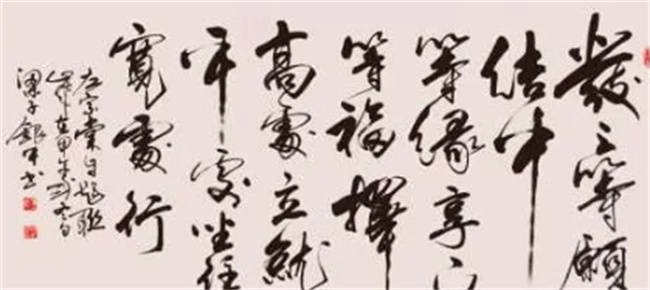 發上等願
结中
等缘享下
等福擇
高處立就
平處坐
寬處行
左宗棠自題聯